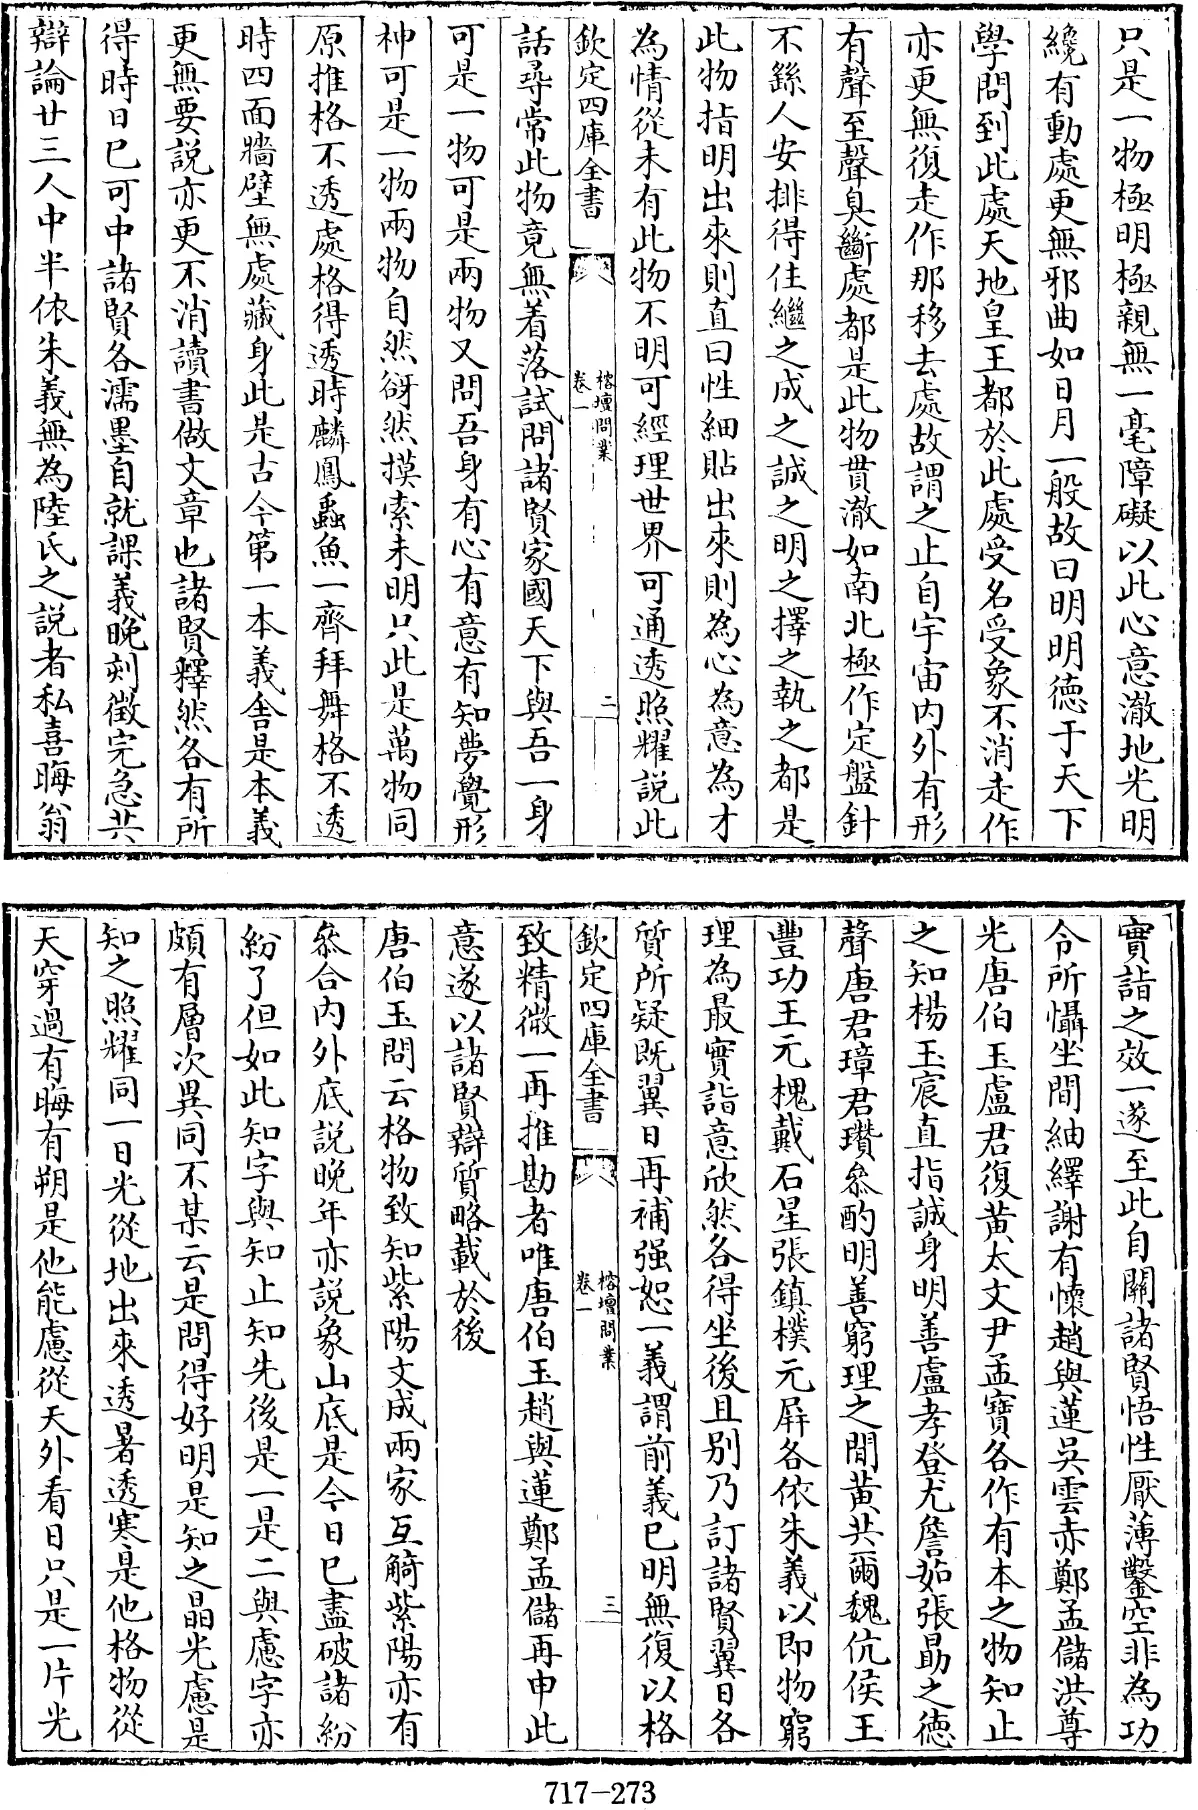 只是一物極明極親無一毫障礙以此心意澈地光明
纔有動處更無邪曲如日月一般故曰明明德于天下
學問到此處天地皇王都於此處受名受象不消走作
亦更無復走作那移去處故謂之止自宇宙內外有形
有聲至聲臭斷處都是此物貫澈如南北極作定盤針
不繇人安排得住繼之成之誠之明之擇之執之都是
此物指明出來則直曰性細貼出來則為心為意為才
為情從未有此物不明可經理世界可通透照耀說此
欽定四庫全書
榕壇問業
卷一
二
話尋常此物竟無着落試問諸賢家國天下與吾一身
可是一物可是兩物又問吾身有心有意有知夢覺形
神可是一物兩物自然谺然摸索未明只此是萬物同
原推格不透處格得透時麟鳳蟲魚一齊拜舞格不透
時四面牆壁無處藏身此是古今第一本義舍是本義
更無要說亦更不消讀書做文章也諸賢釋然各有所
得時日已可中諸賢各濡墨自就課義晚刻徵完急共
辯論廿三人中半依朱義無為陸氏之說者私喜晦翁
實詣之效一遂至此自關諸賢悟性厭薄鑿空非為功
令所懾坐間紬繹謝有懷趙與蓮吳雲赤鄭孟儲洪尊
光唐伯玉盧君復黃太文尹孟寶各作有本之物知止
之知楊玉宸直指誠身明善盧孝登尤詹茹張勗之德
聲唐君璋君瓚叅酌明善窮理之間黃共爾魏伉侯王
豐功王元槐戴石星張鎮樸元屏各依朱義以即物窮
理為最實詣意欣然各得坐後且別乃訂諸賢翼日各
質所疑既翼日再補强恕一義謂前義已明無復以格
欽定四庫全書
榕壇問業
卷一
三
致精微一再推勘者唯唐伯玉趙與蓮鄭孟儲再申此
意遂以諸賢辯質略載於後
唐伯玉問云格物致知紫陽文成兩家互觭紫陽亦有
叅合內外底說晚年亦說象山底是今日已盡破諸紛
紛了但如此知字與知止知先後是一是二與慮字亦
頗有層次異同不某云是問得好明是知之晶光慮是
知之照耀同一日光從地出來透暑透寒是他格物從
天穿過有晦有朔是他能慮從天外看日只是一片光
717-273